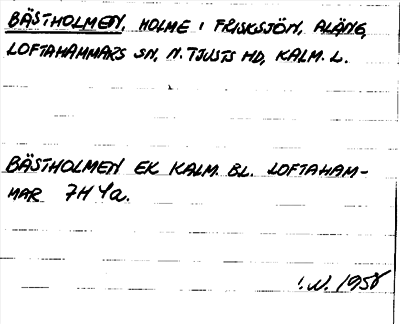 BÄSTHOLMEN, HOLME I FRISKSJÖN, ALÄNG,
LOFTAHAMMARS SN, N. TJUSTS HD, KALM. L.
BÄSTHOLMEN EK KALM. BL. LOFTAHAM-
MAR 7H 4a.
I.W. 1958